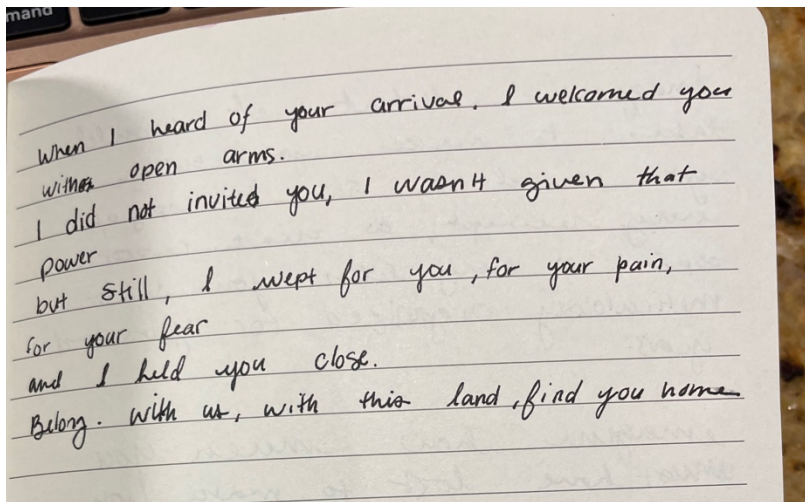 mand
When I heard of your arrival. I welcomed you
with open arms.
I did not invited you, I wasn't given that
power
but still, I wept for you, for your pain,
for your fear
and I held you close.
Belong. With us, with this land, find you home